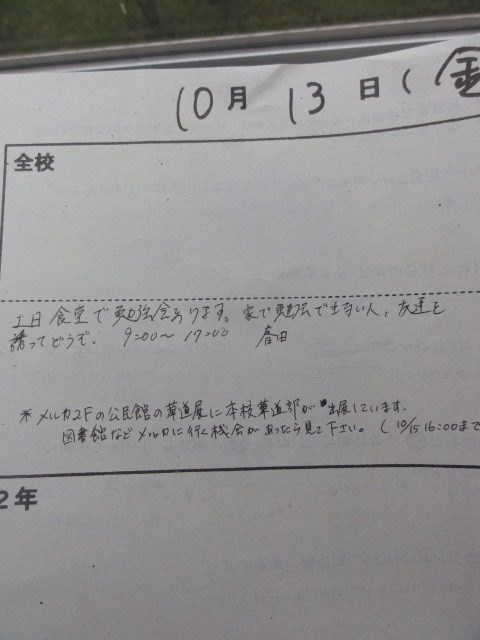 10月 13日(金
全校
土日 食堂で勉強会あります。家で勉強できない人、友達を
誘ってどうぞ。 9:00〜17:00 春田
*メルカ2Fの公民館の華道展に本校華道部が出展しています.
図書館などメルカに行く機会があったら見て下さい。(10/15 16:00まで
2年